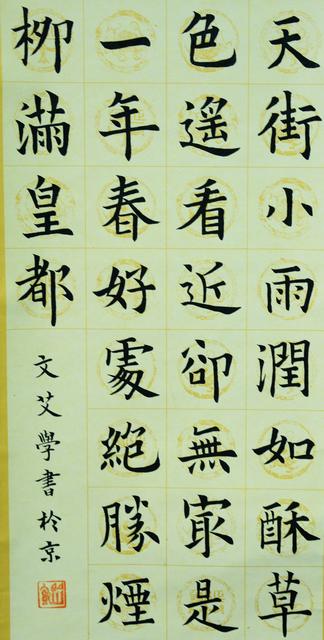 天街小雨潤如酥草
色遥看近卻無冣是
一年春好處絕勝煙
柳滿皇都
文艾學書於京